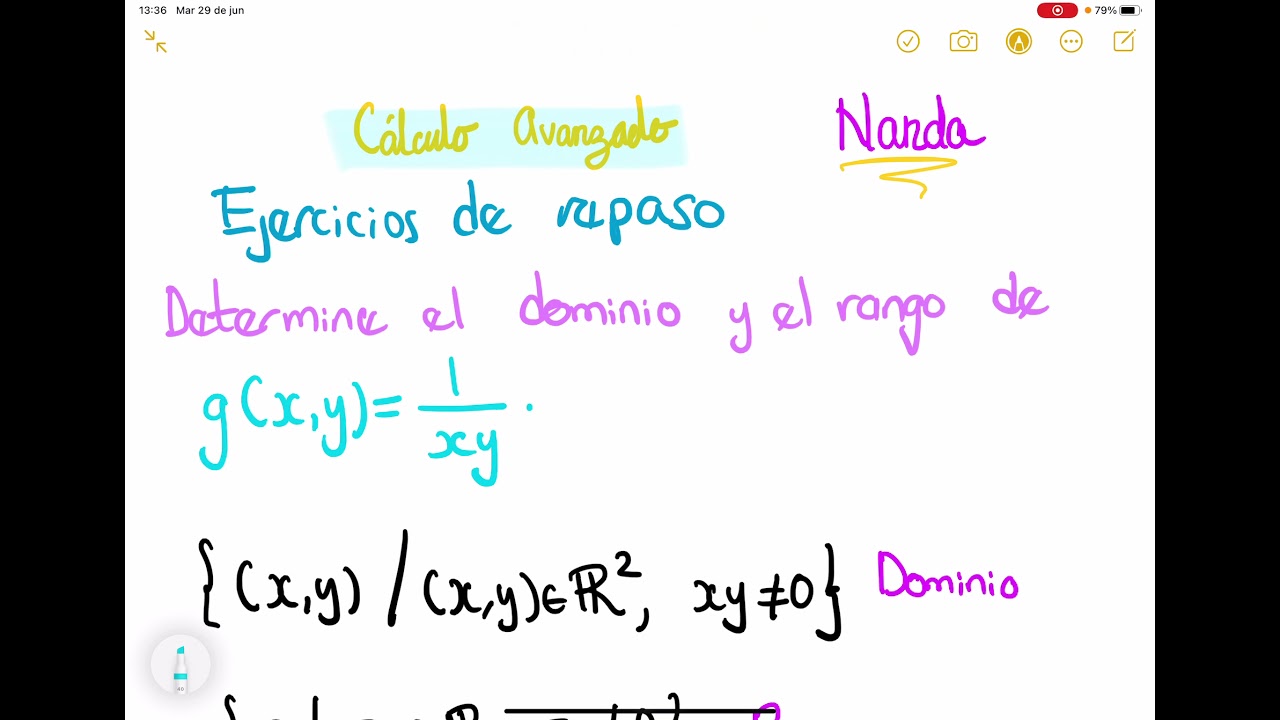 13:36 Mar 29 de jun 79%
Cálculo Avanzado Nanda
Ejercicios de repaso
Determine el dominio y el rango de
g(x,y)= 1/xy .
{(x,y) / (x,y)∈ℝ², xy≠0} Dominio